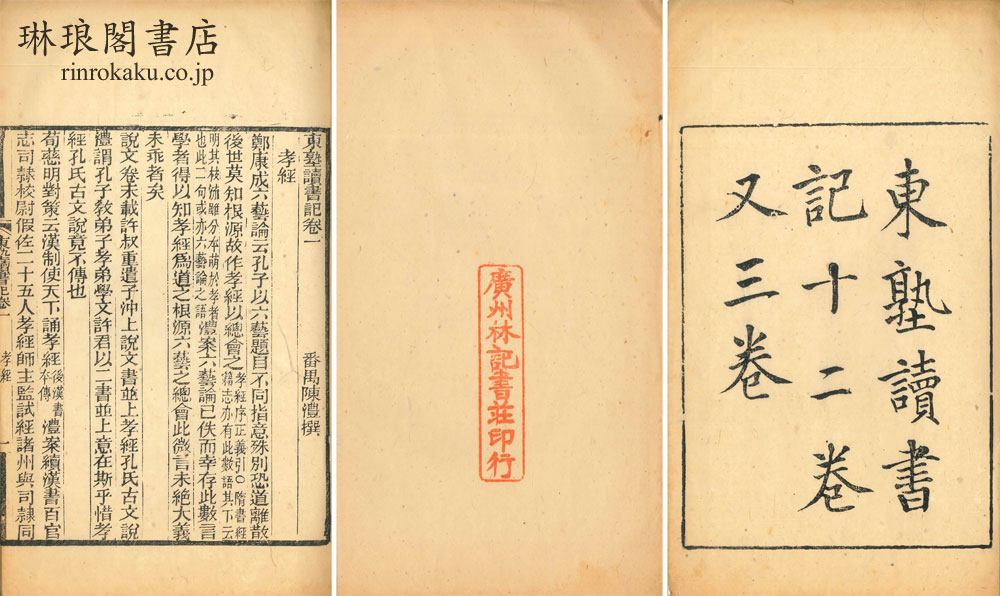 琳琅閣書店
rinrokaku.co.jp
東塾讀書
記十二卷
又三卷
廣州林記書莊印行
東塾讀書記卷一
番禺陳澧撰
孝經
鄭康成六藝論云孔子以六藝題目不同指意殊別恐道離散
後世莫知根源故作孝經以總會之孝經序正義引○隋書經籍志亦有此數語其下云
明其枝流雖分本萌於孝者也此二句或亦六藝論之語澧案六藝論已佚而幸存此數言
學者得以知孝經爲道之根源六藝之總會此微言未絕大義
未乖者矣
說文卷末載許叔重遣子沖上說文書並上孝經孔氏古文說
澧謂孔子敎弟子孝弟學文許君以二書並上意在斯乎惜孝
經孔氏古文說竟不傳也
荀慈明對策云漢制使天下誦孝經後漢書本傳澧案續漢書百官
志司隸校尉假佐二十五人孝經師主監試經諸州與司隸同
東塾讀書記卷一
孝經
一